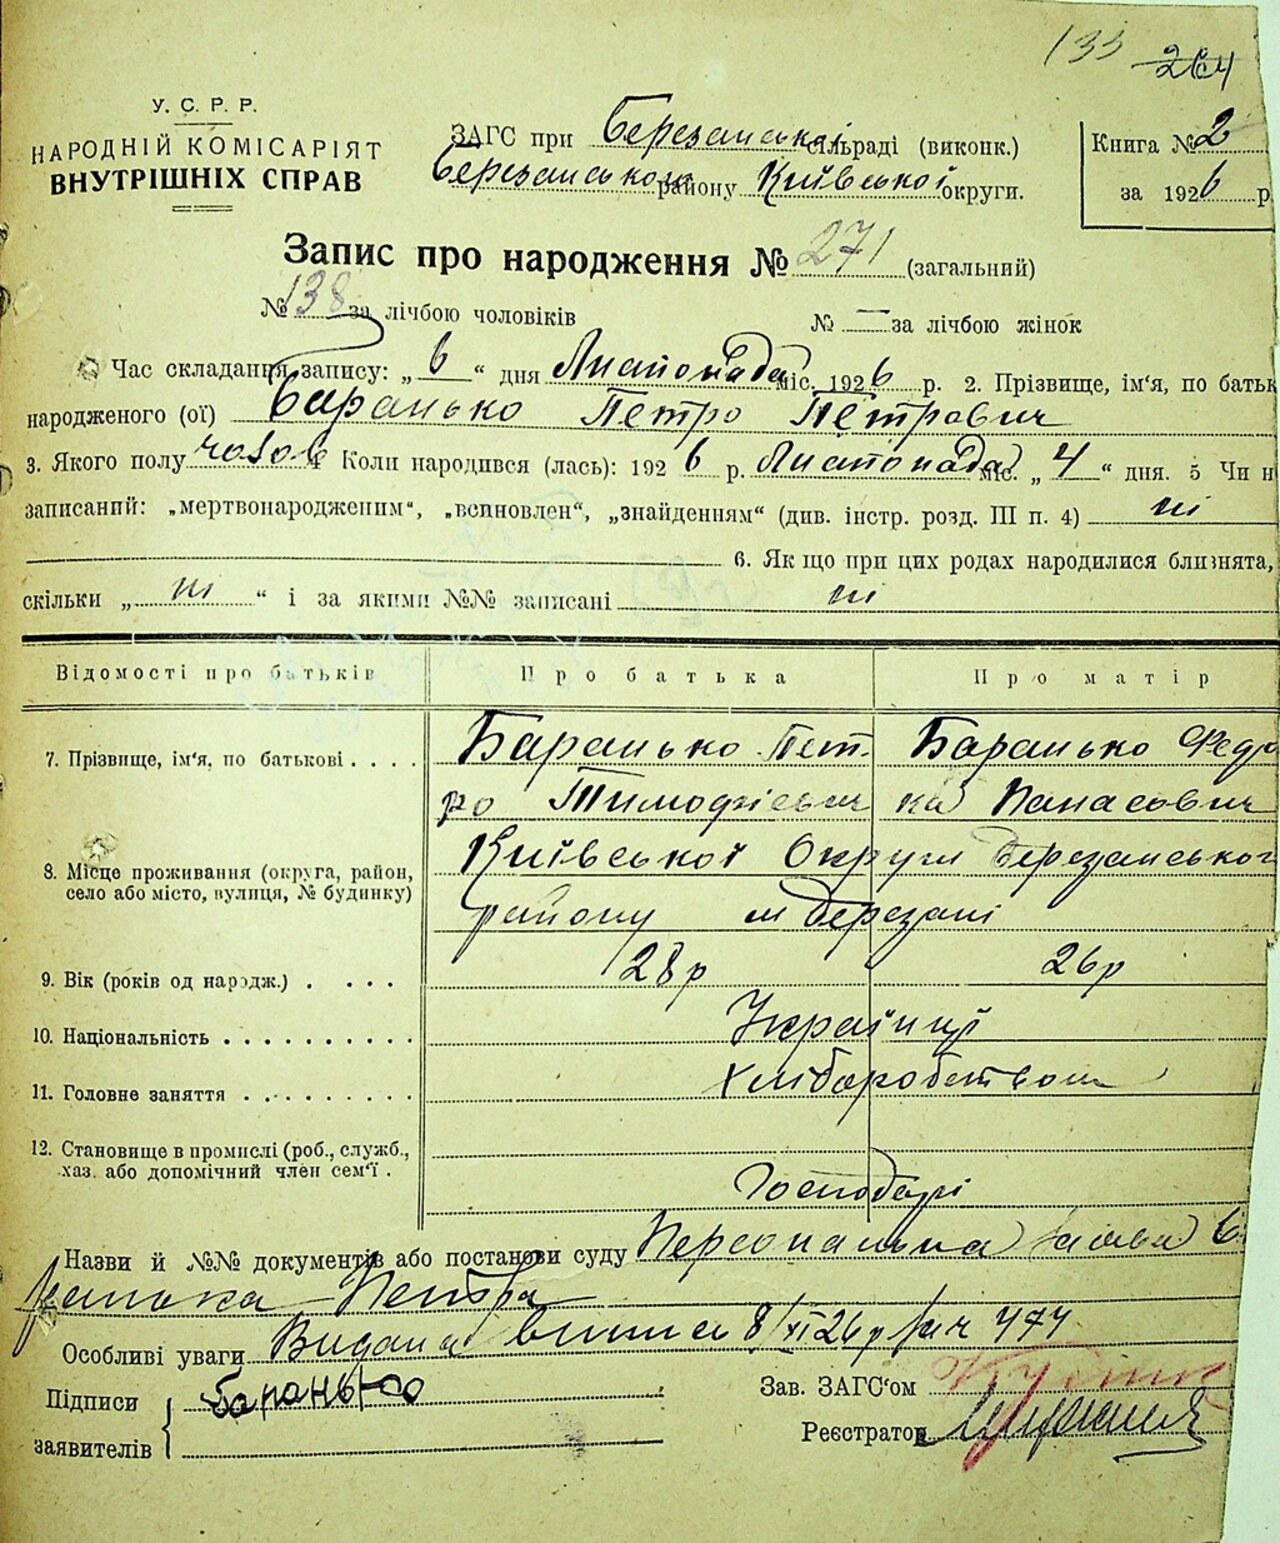 133 264
У. С. Р. Р.
НАРОДНІЙ КОМІСАРІЯТ
ВНУТРІШНІХ СПРАВ
ЗАГС при Березанській сільраді (виконк.)
Березанського району Київської округи.
Книга № 2
за 1926 р
Запис про народження № 271 (загальний)
№ 138 за лічбою чоловіків № — за лічбою жінок
Час складання запису: „6“ дня Листопада міс. 1926 р. 2. Прізвище, ім'я, по батьк
народженого (ої) Баранько Петро Петрович
3. Якого полу чолов 4 Коли народився (лась): 1926 р. Листопада міс. „4“ дня. 5 Чи н
записаний: „мертвонародженим“, „всиновлен“, „знайденням“ (див. інстр. розд. III п. 4) ні
6. Як що при цих родах народилися близнята,
скільки „ні“ і за якими №№ записані ні
Відомості про батьків Про батька Про матір
7. Прізвище, ім'я, по батькові . . . . Баранько Пет- Баранько Федо
ро Тимофієвич ка Панасович
8. Місце проживання (округа, район, село або місто, вулиця, № будинку) Київської Округи Березанського
району м Березані
9. Вік (років од народж.) . . . . 28р 26р
10. Національність . . . . . . . . . . Українці
11. Головне заняття . . . . . . . . . Хліборобством
12. Становище в промислі (роб., служб.,
хаз. або допомічний член сем'ї . Господарі
Назви й №№ документів або постанови суду Персональна заява Б
ранька Петра
Особливі уваги Видана виписъ 8/XI 26р 474
Підписи Баранько Зав. ЗАГС'ом
заявителів Реєстратор